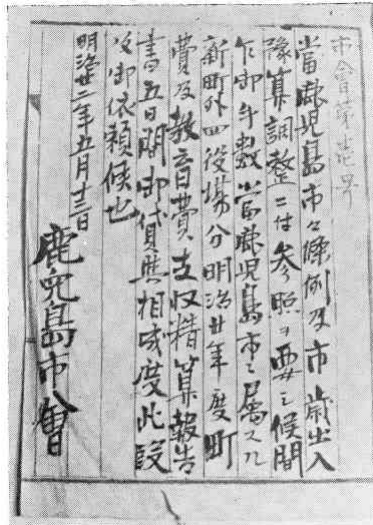 市會第壱号
當鹿児島市々條例及市歳出入
豫算調整ニ付参照ヲ要シ候間
乍御手数當鹿児島市ニ属スル
新町外四役場分明治廿年度町
費及教育費支収精算報告
書五日間御貸與相成度此段
及御依頼候也
明治廿二年五月十三日
鹿児島市會